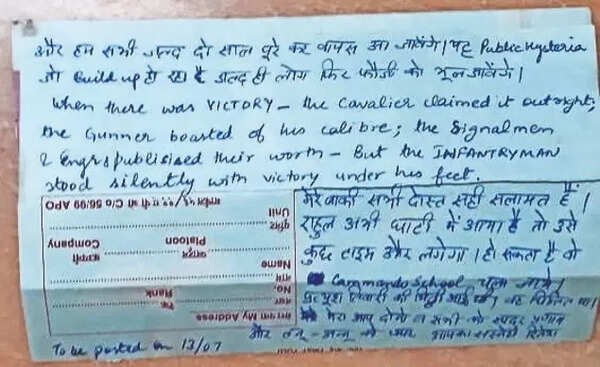 और हम सभी जल्द दो साल पूरे कर वापस आ जावेंगे। यह Public Hysteria
जो build up हो रहा है जल्द ही लोग फिर फौजी को भूल जावेंगे।
When there was VICTORY – the Cavalier claimed it outright;
the Gunner boasted of his calibre; the Signalmen
& Engrs publisised their worth – But the INFANTRYMAN
stood silently with victory under his feet.
मेरे बाकी सभी दोस्त सही सलामत हैं।
राहुल अभी घाटी में आया है तो उसे
कुछ टाइम और लगेगा। हो सकता है वो
Commando School चला जावे।
की चिट्ठी आई
मेरा आप दोनों व सभी को सादर प्रणाम
और को प्यार आपका
To be posted on 13/07
मेरा पता My Address
नं०
No.
रैंक
Rank
नाम
Name
प्लाटून
Platoon
कम्पनी
Company
यूनिट
Unit
C/o 56/99 APO